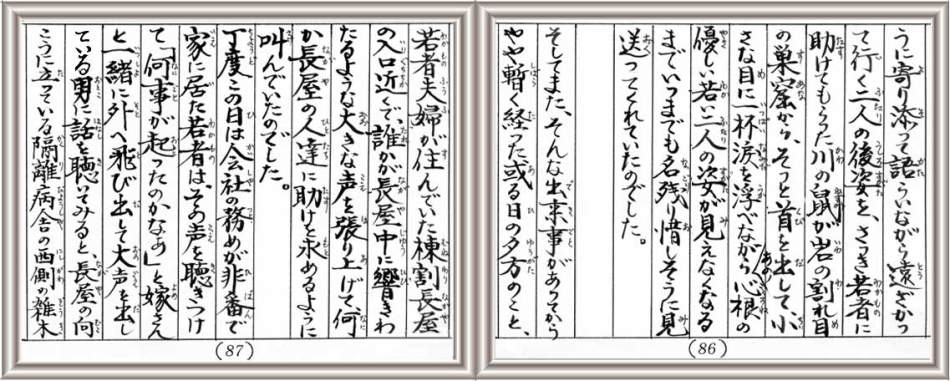 うに寄り添って語らいながら遠ざかっ
て行く二人の後姿を、さっき若者に
助けてもらった川の鼠が岩の割れ目
の巣窟から、そっと首を出して、小
さな目に一杯涙を浮べながら心根の
優しい若い二人の姿が見えなくなる
までいつまでも名残り惜しそうに見
送ってくれていたのでした。
そしてまた、そんな出来事があってから
やや暫く経った或る日の夕方のこと、
(86)
若者夫婦が住んでいた棟割長屋
の入口近くで、誰かが長屋中に響きわ
たるような大きな声を張り上げて、何
か長屋の人達に助けを求めるように
叫んでいたのでした。
丁度この日は会社の務めが非番で
家に居た若者は、その声を聴きつけ
て「何事が起ったのかなあ」と嫁さん
と一緒に外へ飛び出して大声を出し
ている男に話を聴いてみると、長屋の向
こうに立っている隔離病舎の西側の雑木
(87)